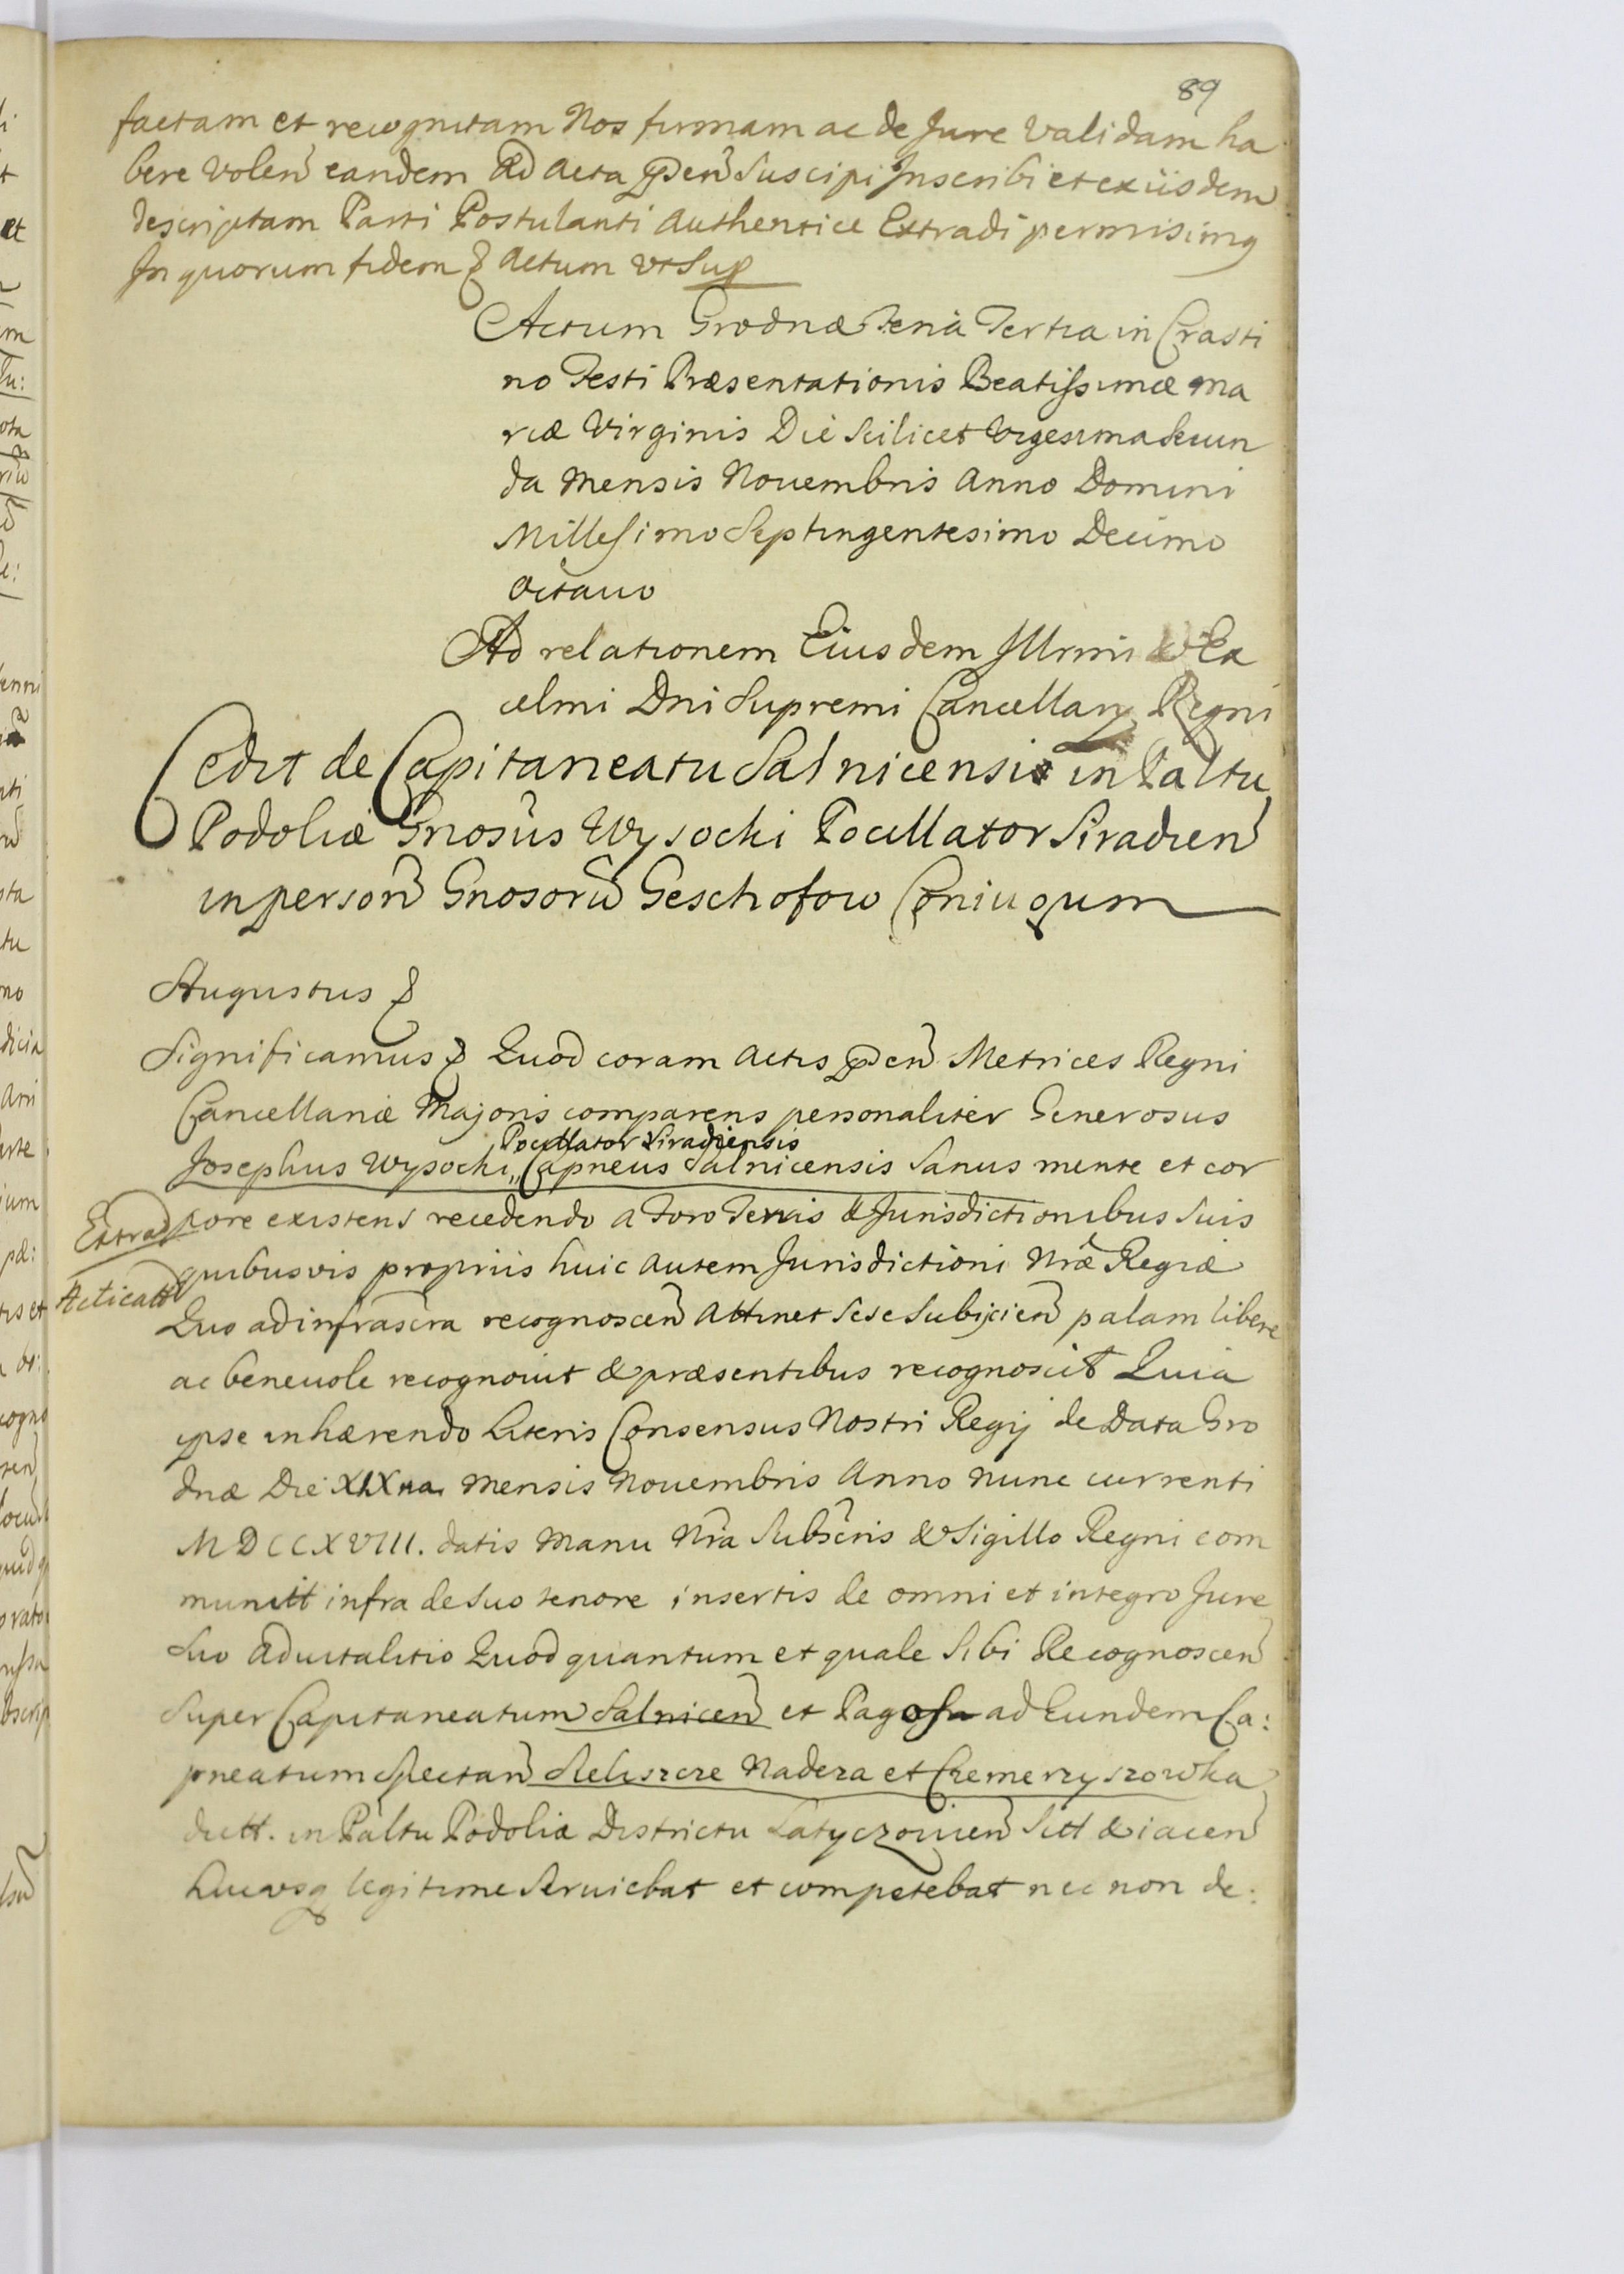 89
factam et recognitam Nos firmam ac de Jure validam ha
bere volen eandem Ad Acta pden Suscipi Inscribi et ex iisdem
descriptam Parti Postulanti Authentice Extradi permisimq
In quorum fidem & Actum vt Sup
Actum Grodnæ Feria Tertia in Crasti
no Festi Præsentationis Beatissimæ Ma
riæ Virginis Die Scilicet Vigesima Secun
da Mensis Nouembris Anno Domini
Millesimo Septingentesimo Decimo
Octauo
Ad relationem Eiusdem Illrmi & Ex
celmi Dni Supremi Cancellarij Regni
Cedit de Capitaneatu Salnicensi in Paltu
Podoliæ Gnosus Wysocki Pocillator Siradien
in person Gnosoru Geschofow Coniugum
Augustus &
Significamus & Quod coram Actis pden Metrices Regni
Cancellariæ Majoris comparens personaliter Generosus
Pocillator Siradiensis
Josephus Wysocki,, Capneus Salnicensis Sanus mente et cor
Extrad
pore existens recedendo a Foro Terris & Jurisdictionibus Suis
quibusvis propriis huic autem Jurisdictioni Nræ Regiæ
Acticatt
Quo ad infrascra recognoscen Attinet Sese Subijcien palam libere
ac beneuole recognouit & præsentibus recognoscit Quia
ipse inhærendo Literis Consensus Nostri Regij de Data Gro
dnæ Die XIXna Mensis Nouembris Anno Nunc currenti
MDCCXVIII. datis Manu Nra Subscris & Sigillo Regni com
munitt infra de Suo tenore insertis de omni et integro Jure
Suo Aduitalitio Quod quantum et quale Sibi Recognoscen
Super Capitaneatum Salnicen et Pagos ad Eundem Ca:
pneatum Spectan Seliszcze Nadera et Czemerzyszowka
dictt. in Paltu Podoliæ Districtu Latyczouien Sitt & iacen
hucvsq legitime Seruiebat et competebat nec non de: